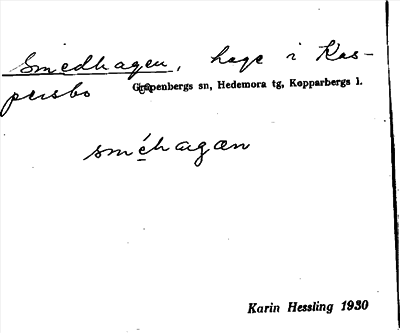 Smedhagen, hage i Kas-
persbo Garpenbergs sn, Hedemora tg, Kopparbergs l.
sméhagan
Karin Hessling 1930